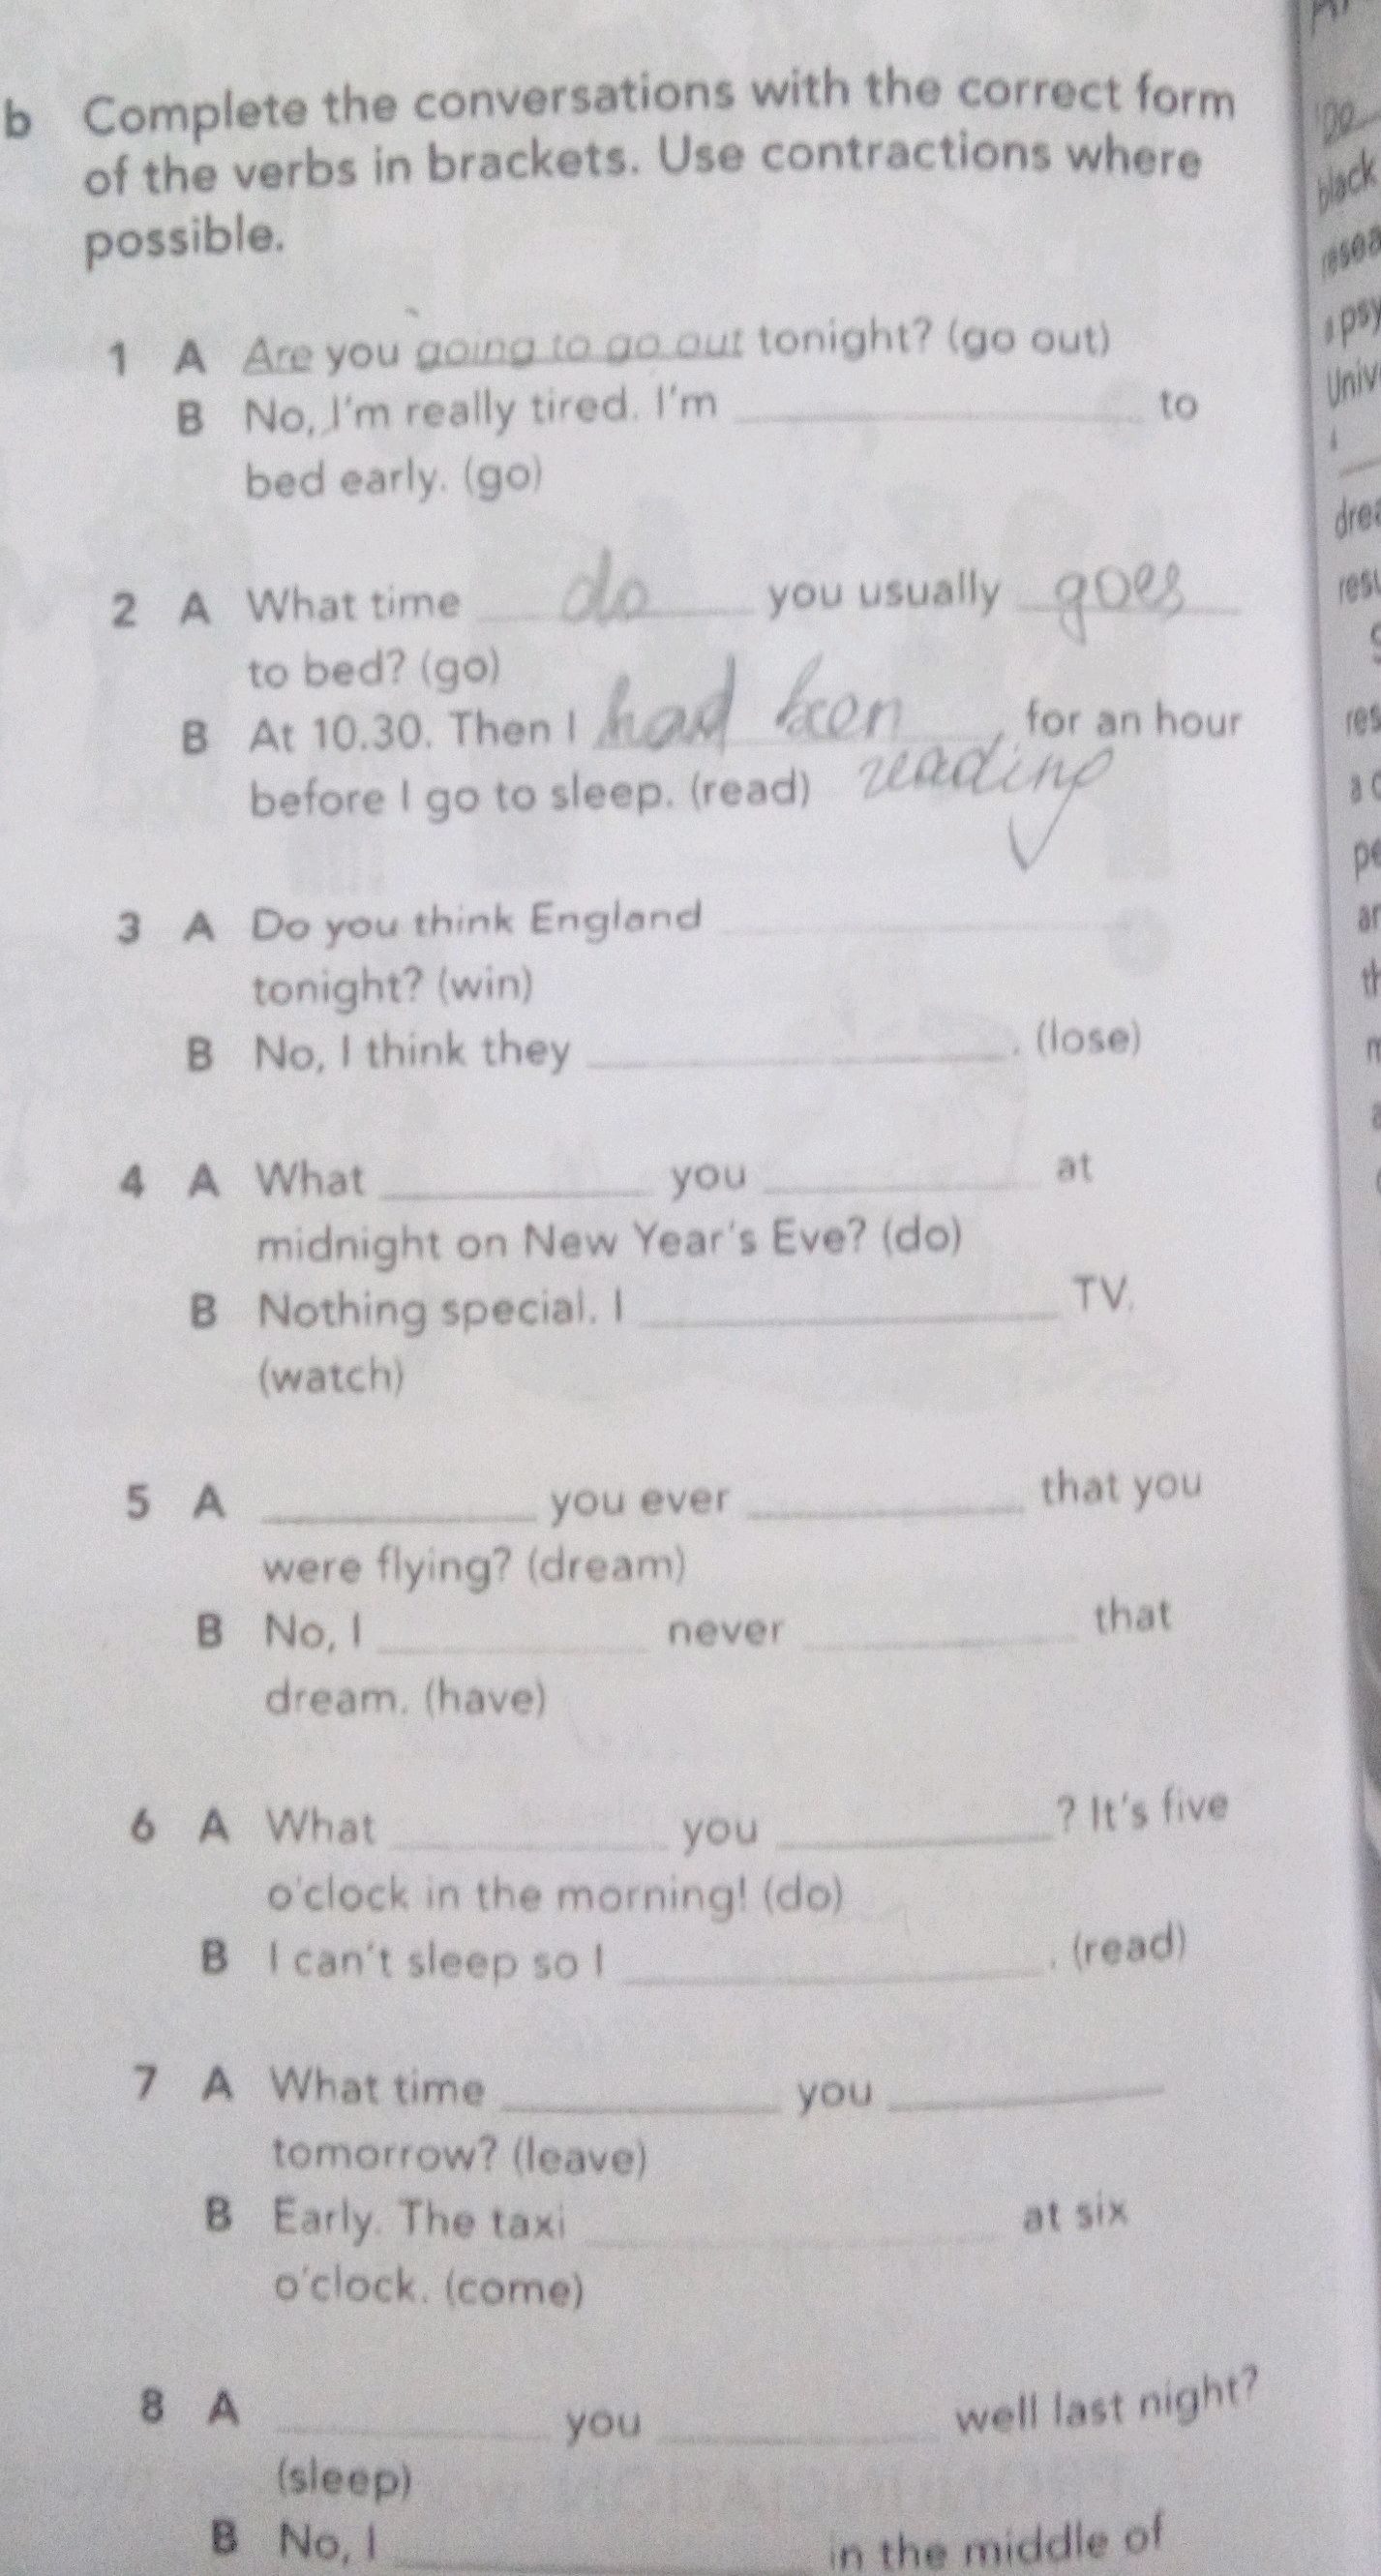 b Complete the conversations with the correct form
of the verbs in brackets. Use contractions where
possible.
1 A Are you going to go out tonight? (go out)
B No, I'm really tired. I'm ____ to
bed early. (go)
2 A What time do you usually goes
to bed? (go)
B At 10.30. Then I had been , for an hour
reading
before I go to sleep. (read)
3 A Do you think England ____
tonight? (win)
B No, I think they ____. (lose)
4 A What ____ you ____ at
midnight on New Year's Eve? (do)
B Nothing special. I ____ TV.
(watch)
5 A ____ you ever ____ that you
were flying? (dream)
B No, I ____ never ____ that
dream. (have)
6 A What ____ you ____? It's five
o'clock in the morning! (do)
B I can't sleep so I ____. (read)
7 A What time ____ you ____
tomorrow? (leave)
B Early. The taxi ____ at six
o'clock. (come)
8 A ____ you ____ well last night?
(sleep)
B No, I ____ in the middle of
black